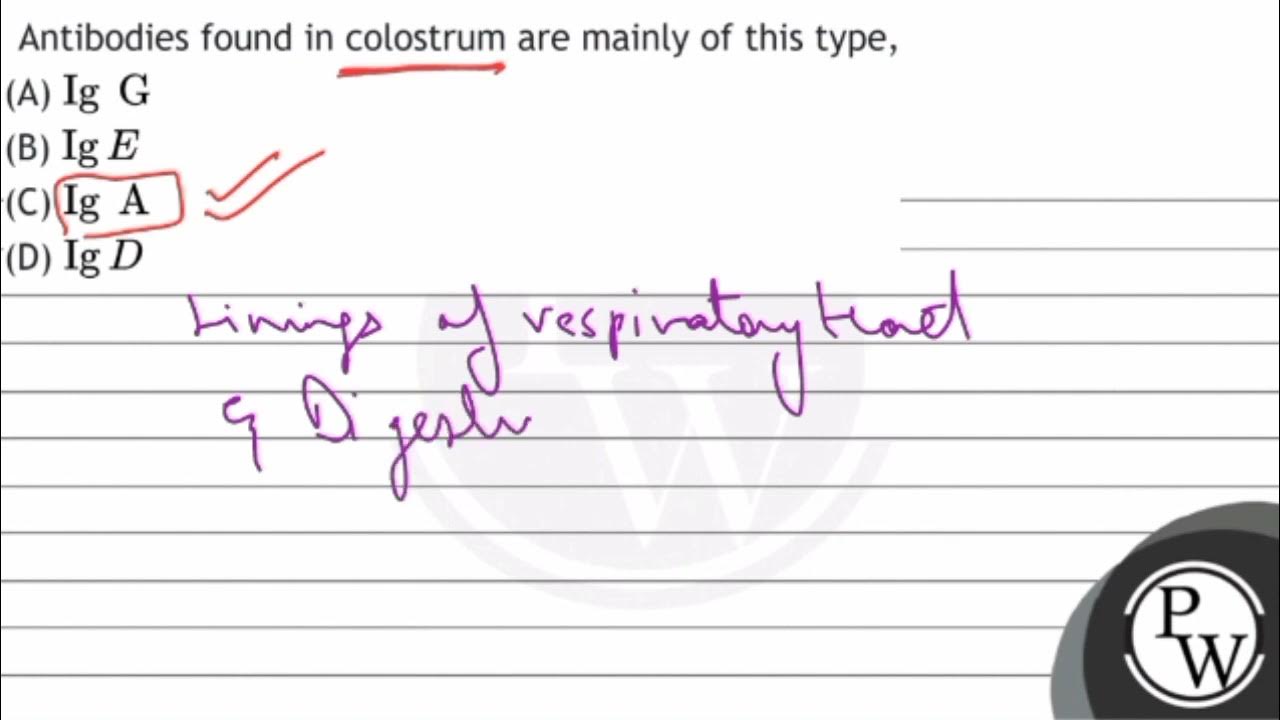 Antibodies found in colostrum are mainly of this type,
(A) Ig G
(B) Ig E
(C) Ig A
(D) Ig D
Linings of respiratory tract
& Digestiv
W
P
W